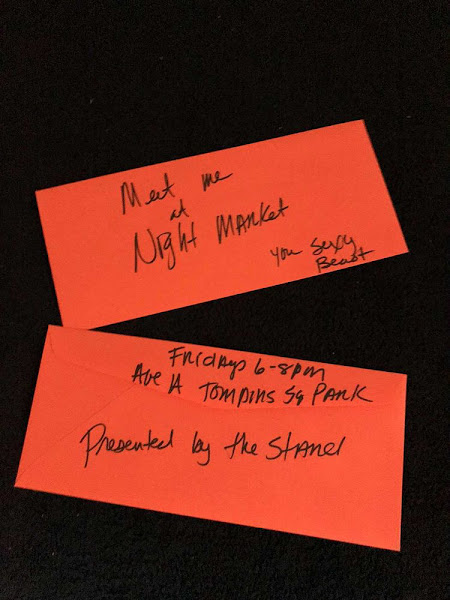 Meet me
at
Night Market
you sexy
Beast
Fridays 6-8pm
Ave A Tompins Sq Park
Presented by the Stand